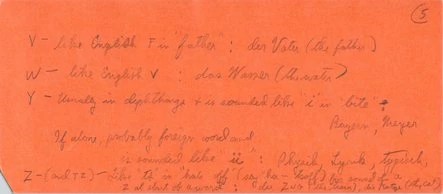 5
V - like English F in "father" : der Vater (the father)
W - like English V : das Wasser (the water)
Y - Usually in diphthongs & is sounded like "i" in "bite" :
Bayern, Meyer
If alone, probably foreign word and
is sounded like "ü" : Physik, Lyrik, typisch,
Z - (and TZ) - Like "ts" in hats off (say ha - tsoff) for sound of a
Z at start of a word : der Zug (the train), die Katze (the cat)